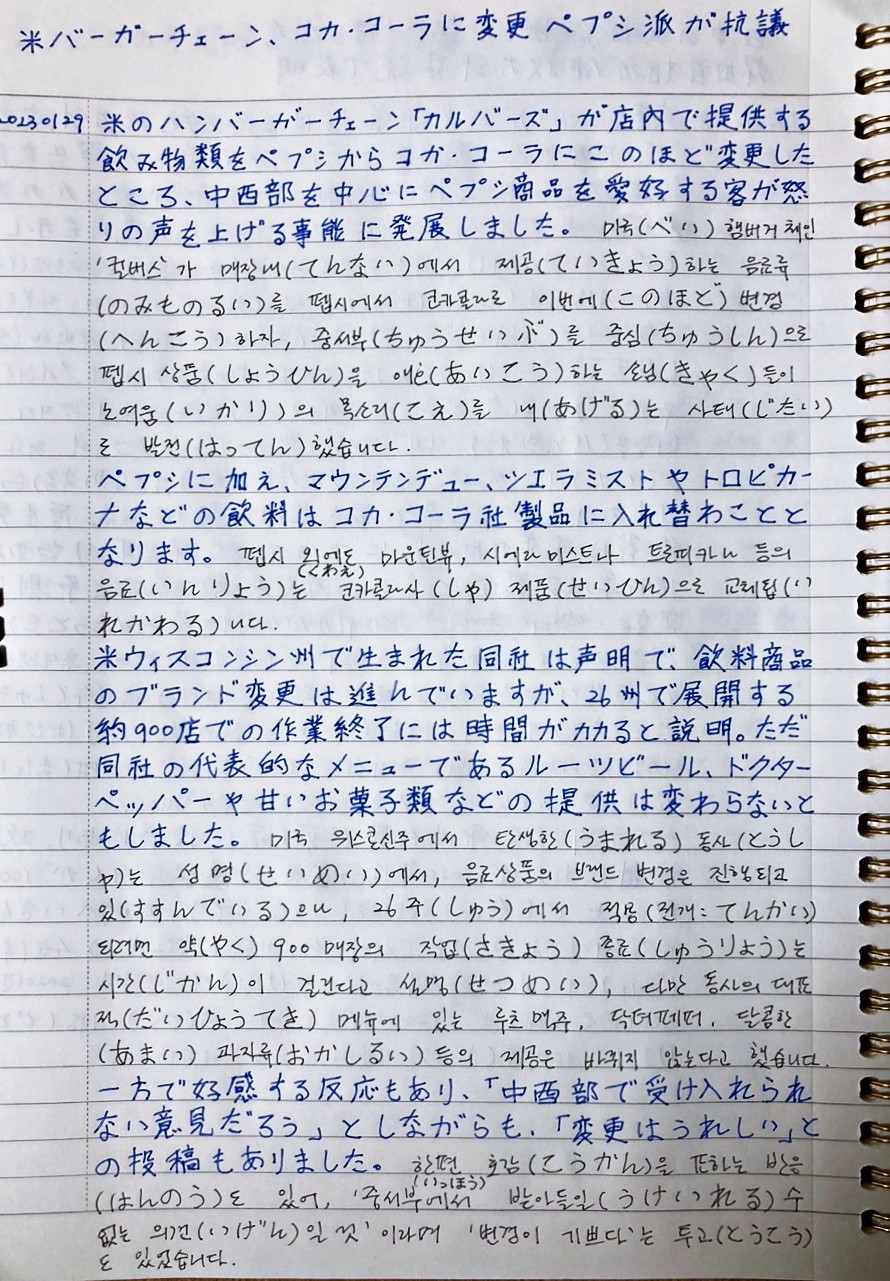 米バーガーチェーン、コカ・コーラに変更 ペプシ派が抗議
20230129 米のハンバーガーチェーン「カルバーズ」が店内で提供する
飲み物類をペプシからコカ・コーラにこのほど変更した
ところ、中西部を中心にペプシ商品を愛好する客が怒
りの声を上げる事態に発展しました。 미국(べい) 햄버거 체인
'컬버스'가 매장내(てんない)에서 제공(ていきょう)하는 음료류
(のみものるい)를 펩시에서 코카콜라로 이번에(このほど) 변경
(へんこう)하자, 중서부(ちゅうせいぶ)를 중심(ちゅうしん)으로
펩시 상품(しょうひん)을 애호(あいこう)하는 손님(きゃく)들이
노여움(いかり)의 목소리(こえ)를 내(あげる)는 사태(じたい)
로 발전(はってん)했습니다.
ペプシに加え、マウンテンデュー、シエラミストやトロピカー
ナなどの飲料はコカ・コーラ社製品に入れ替わことと
なります。 펩시 외에도(くわえ) 마운틴뷰, 시에라미스트나 트로피카나 등의
음료(いんりょう)는 코카콜라사(しゃ) 제품(せいひん)으로 교체됩(い
れかわる)니다.
米ウィスコンシン州で生まれた同社は声明で、飲料商品
のブランド変更は進んでいますが、26州で展開する
約900店での作業終了には時間がカカると説明。ただ
同社の代表的なメニューであるルーツビール、ドクター
ペッパーや甘いお菓子類などの提供は変わらないと
もしました。 미국 위스콘신주에서 탄생한(うまれる) 동사(とうし
ゃ)는 성명(せいめい)에서, 음료상품의 브랜드 변경은 진행되고
있(すすんでいる)으나, 26주(しゅう)에서 적용(전개:てんかい)
되려면 약(やく) 900 매장의 작업(さきょう) 종료(しゅうりょう)는
시간(じかん)이 걸린다고 설명(せつめい), 다만 동사의 대표
적(だいひょうてき) 메뉴에 있는 루츠 맥주, 닥터페퍼, 달콤한
(あまい) 과자류(おかしるい) 등의 제공은 바뀌지 않는다고 했습니다.
一方で好感する反応もあり、「中西部で受け入れられ
ない意見だろう」としながらも、「変更はうれしい」と
の投稿もありました。 한편(いっぽう) 호감(こうかん)을 표하는 반응
(はんのう)도 있어, '중서부에서 받아들일(うけいれる) 수
없는 의견(いげん)일 것' 이라며 '변경이 기쁘다'는 투고(とうこう)
도 있었습니다.